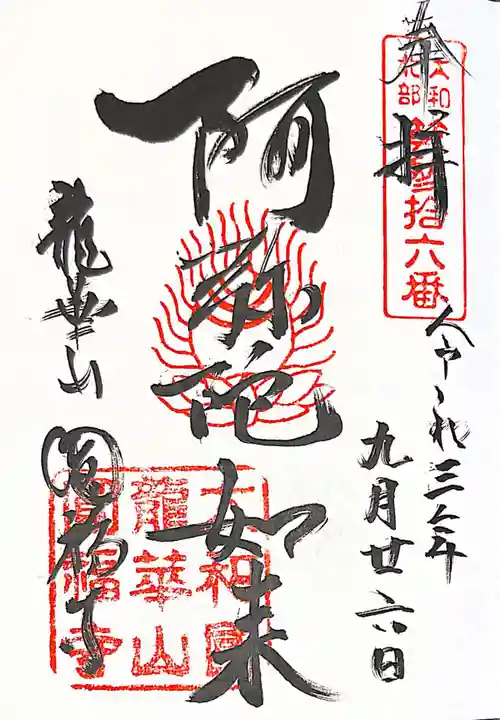 奉拝
大和
北部
第参拾六番
令和三年
九月廿六日
阿弥陀如来
龍華山
圓福寺
大和國
龍華山
圓福寺